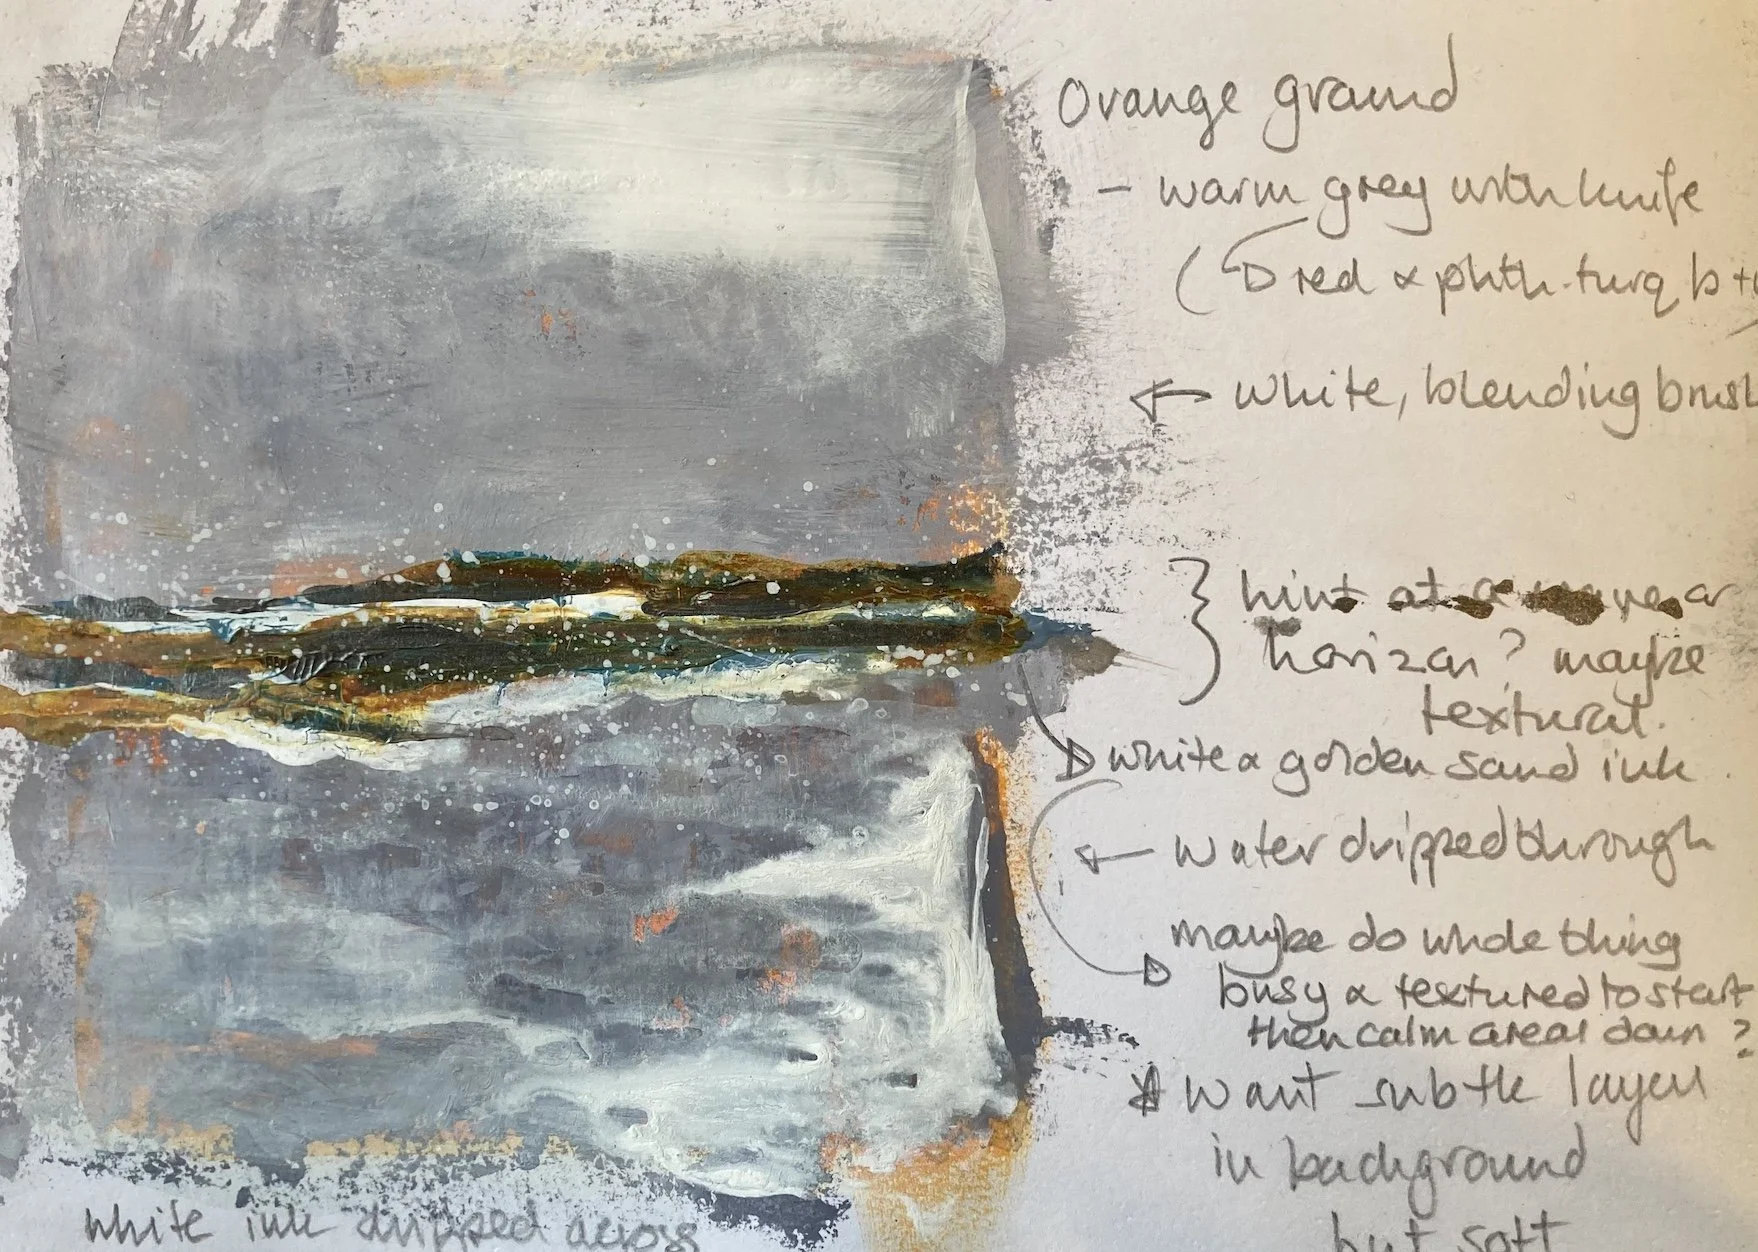 Orange ground
- warm grey with knife
( red & phth. turq b +
white, blending brush
hint at a wave or
horizon? maybe
textural.
white & golden sand ink
water dripped through
maybe do whole thing
busy & textured to start
then calm areas down?
want subtle layers
in background
but soft
white ink dripped across